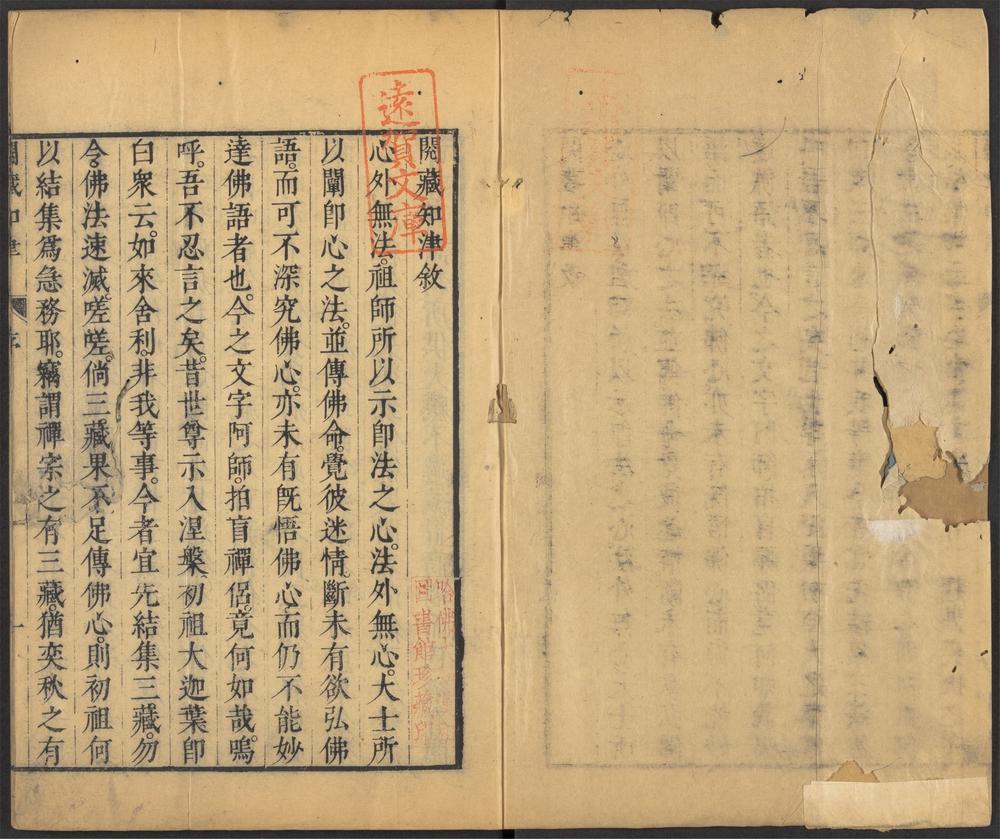 閱藏知津敘
心外無法。祖師所以示卽法之心。法外無心。大士所
以闡卽心之法。並傳佛命。覺彼迷情。斷未有欲弘佛
語。而可不深究佛心。亦未有旣悟佛心而仍不能妙
達佛語者也。今之文字阿師。拍盲禪侶。竟何如哉。嗚
呼。吾不忍言之矣。昔世尊示入涅槃。初祖大迦葉卽
白衆云。如來舍利。非我等事。今者宜先結集三藏。勿
令佛法速滅。嗟嗟。倘三藏果不足傳佛心。則初祖何
以結集爲急務耶。竊謂禪宗之有三藏。猶奕秋之有
閱藏知津
序
一
遠賀文庫
哈佛大
圖書館珍藏印